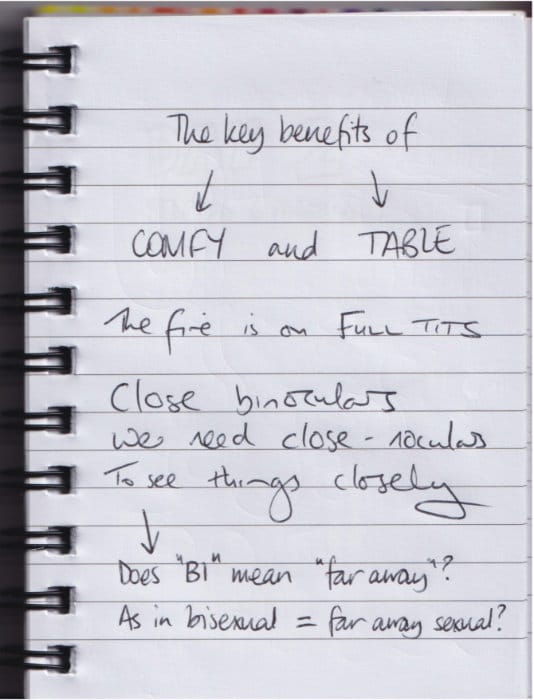 The key benefits of
↓ ↓
COMFY and TABLE
The fire is on FULL TITS
Close binoculars
We need close-noculars
To see things closely
↓
Does "BI" mean "far away"?
As in bisexual = far away sexual?